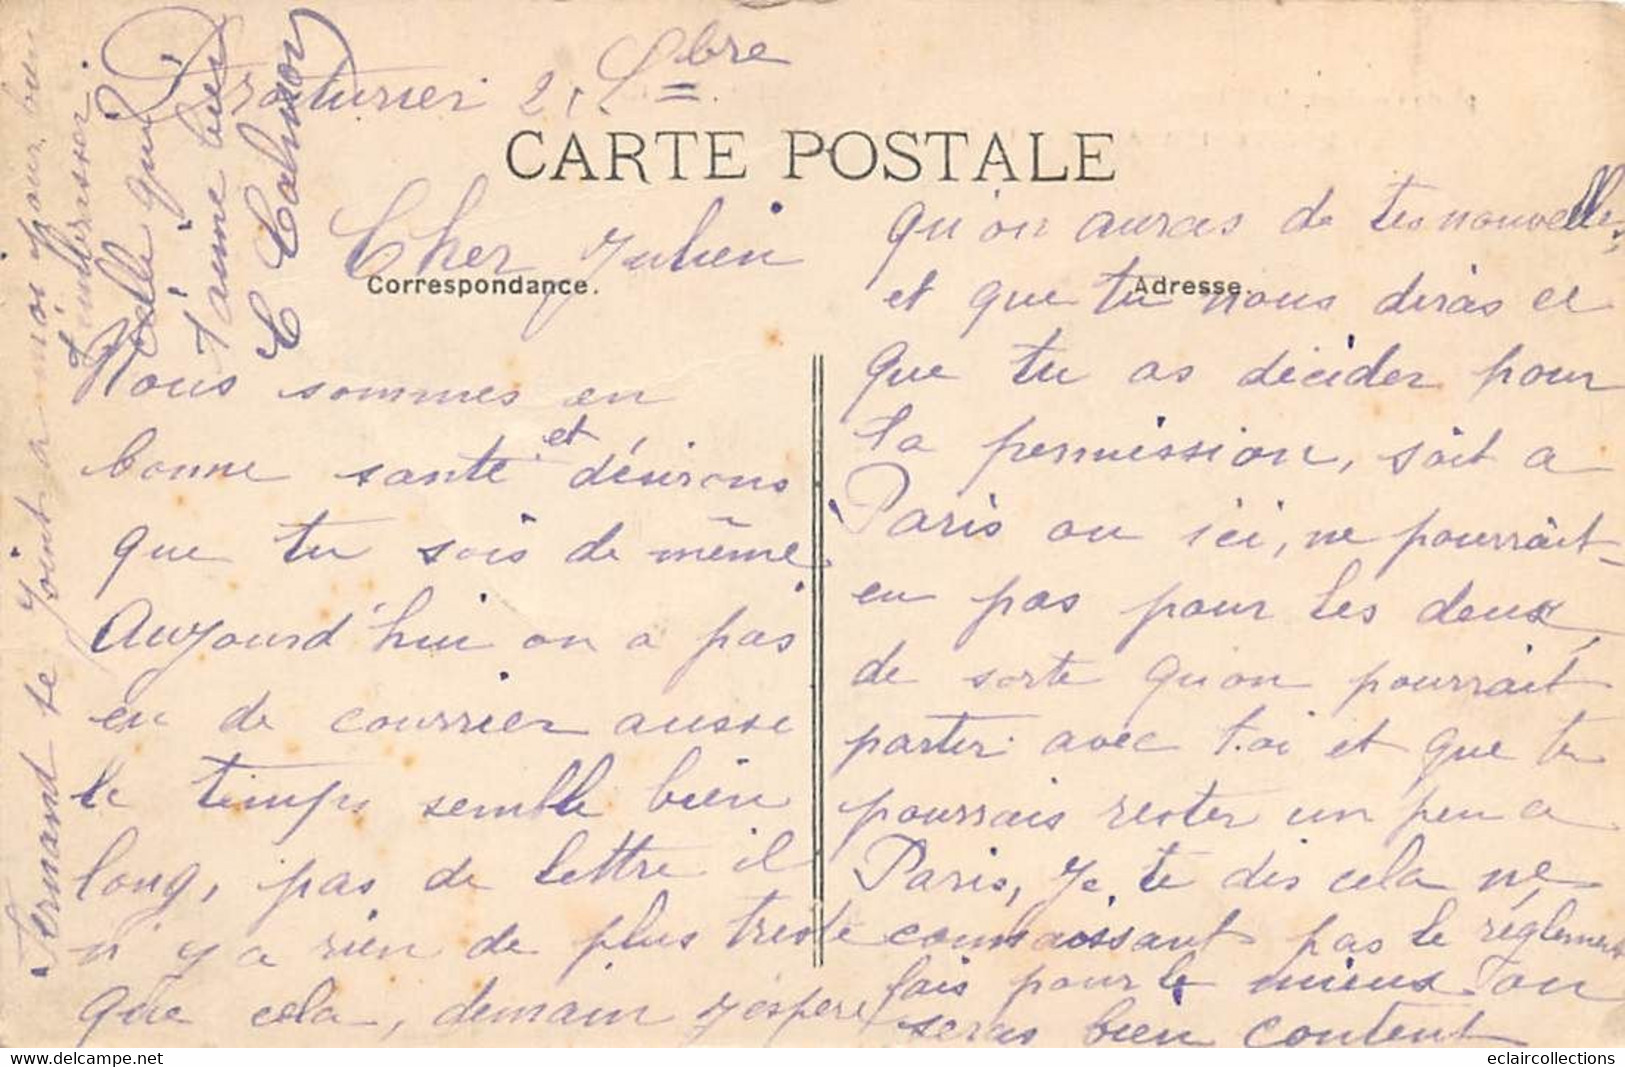 Draturier 21 Sbre
CARTE POSTALE
Cher Julien
Correspondance.
Nous sommes en
bonne santé et désirons
que tu sois de même
Aujourd'hui on a pas
eu de courrier ausse
le temps semble bien
long, pas de lettre il
n'y a rien de plus triste
que cela, demain j'espère
Adresse.
qu'on auras de tes nouvelles,
et que tu nous diras ce
que tu as décider pour
ta permission, soit a
Paris ou ici, ne pourrait-
en pas pour les deux,
de sorte qu'on pourrait
partir avec toi et que tu
pourrais rester un peu a
Paris, je te dis cela ne
connaissant pas le réglement
fais pour le mieux on
seras bien content
Fernand se joint a moi pour bien
t'embrasser.
Celle qui
t'aime bien
C Calmor
eclaircollections